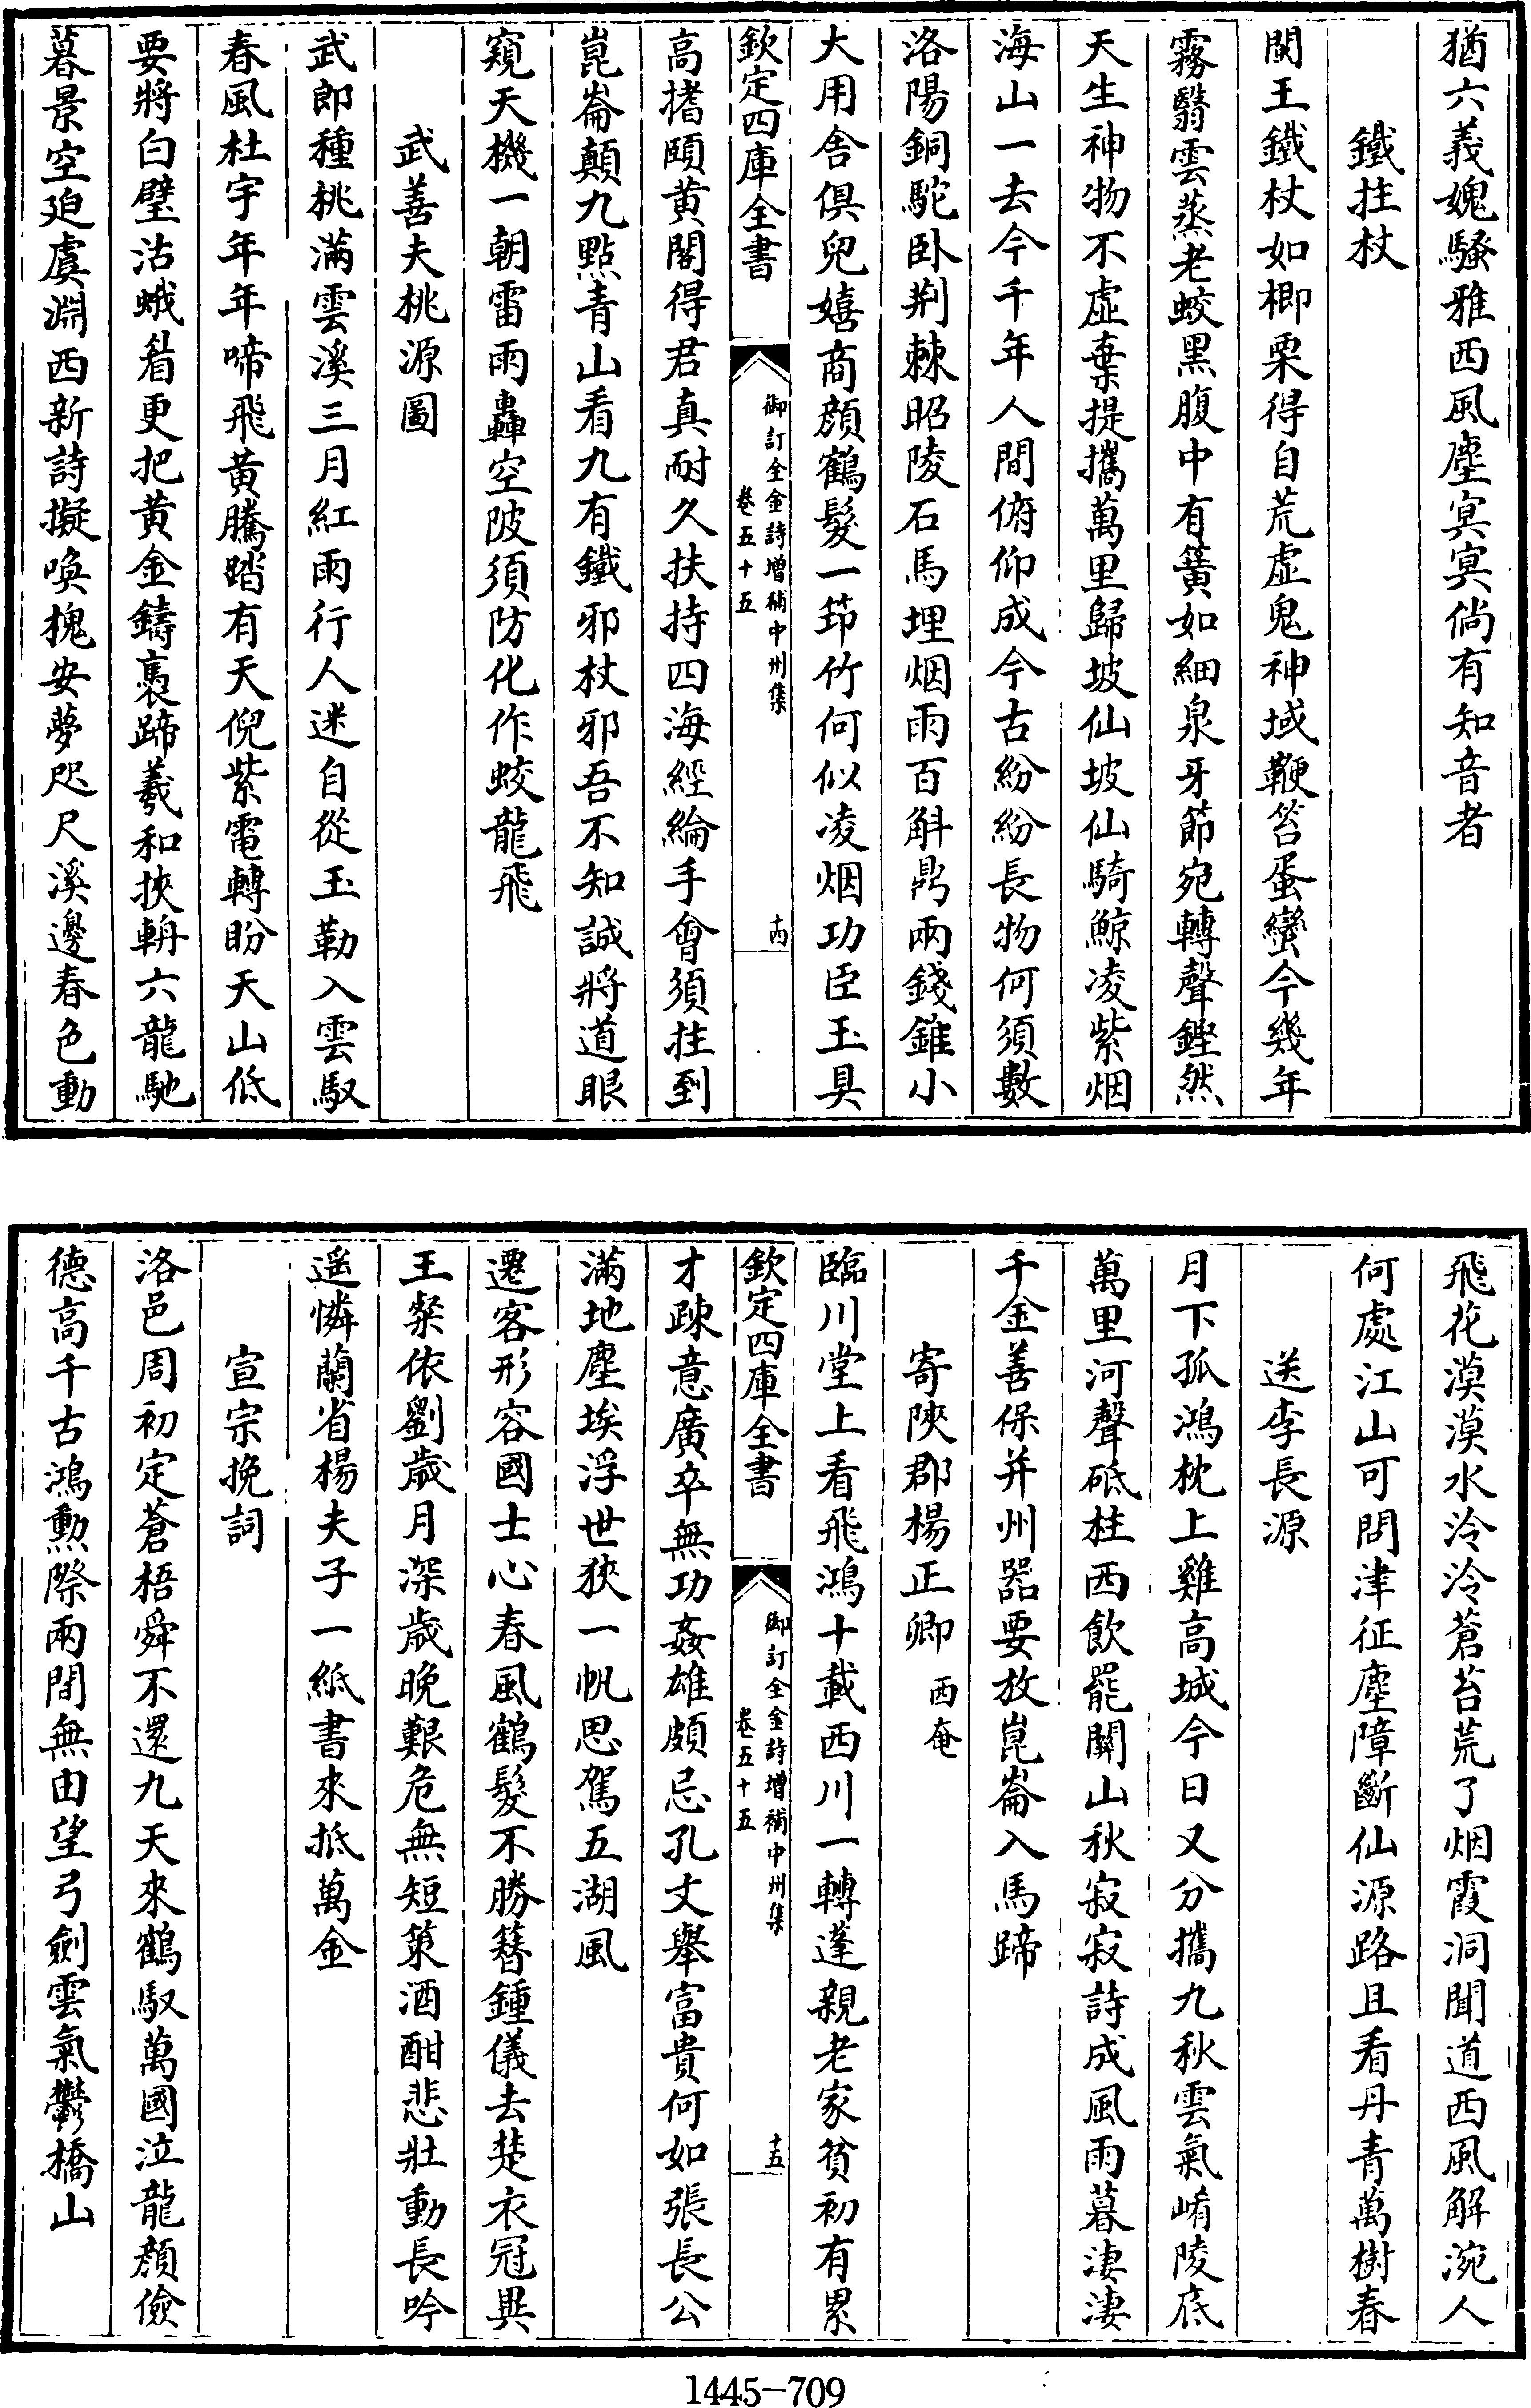 猶六義媿騷雅西風塵㝠㝠倘有知音者
鐵拄杖
閩王鐵杖如楖栗得自荒虚鬼神域鞭笞蛋蠻今幾年
霧翳雲蒸老蛟黑腹中有簧如細泉牙節宛轉聲鏗然
天生神物不虚棄提攜萬里歸坡仙坡仙騎鯨凌紫烟
海山一去今千年人間俯仰成今古紛紛長物何須數
洛陽銅駝卧荆棘昭陵石馬埋烟雨百斛鼎兩錢錐小
大用舎俱兒嬉商顔鶴髮一笻竹何似凌烟功臣玉具
欽定四庫全書
御訂全金詩增補中州集
卷五十五
十四
高揩頤黄閣得君真耐久扶持四海經綸手會須拄到
崑崙顛九點青山看九有鐵邪杖邪吾不知誠將道眼
窺天機一朝雷雨轟空陂須防化作蛟龍飛
武善夫桃源圖
武郎種桃滿雲溪三月紅雨行人迷自從玉勒入雲馭
春風杜宇年年啼飛黄騰踏有天倪紫電轉盼天山低
要將白璧沽蛾眉更把黄金鑄褭蹄羲和挾輈六龍馳
暮景空廹虞淵西新詩擬喚槐安夢咫尺溪邊春色動
飛花漠漠水泠泠蒼苔荒了烟霞洞聞道西風解涴人
何處江山可問津征塵障斷仙源路且看丹青萬樹春
送李長源
月下孤鴻枕上雞高城今日又分攜九秋雲氣崤陵底
萬里河聲砥柱西飲罷關山秋寂寂詩成風雨暮淒淒
千金善保并州器要放崑崙入馬蹄
寄陜郡楊正卿 西奄
臨川堂上看飛鴻十載西川一轉蓬親老家貧初有累
欽定四庫全書
御訂全金詩增補中州集
卷五十五
十五
才疎意廣卒無功姦雄頗忌孔文舉富貴何如張長公
滿地塵埃浮世狹一帆思駕五湖風
遷客形容國士心春風鶴髮不勝簪鍾儀去楚衣冠異
王粲依劉歲月深歲晚艱危無短策酒酣悲壯動長吟
遥憐蘭省楊夫子一紙書來抵萬金
宣宗挽詞
洛邑周初定蒼梧舜不還九天來鶴馭萬國泣龍顔儉
德高千古鴻勲際兩間無由望弓劍雲氣鬱橋山
1445-709